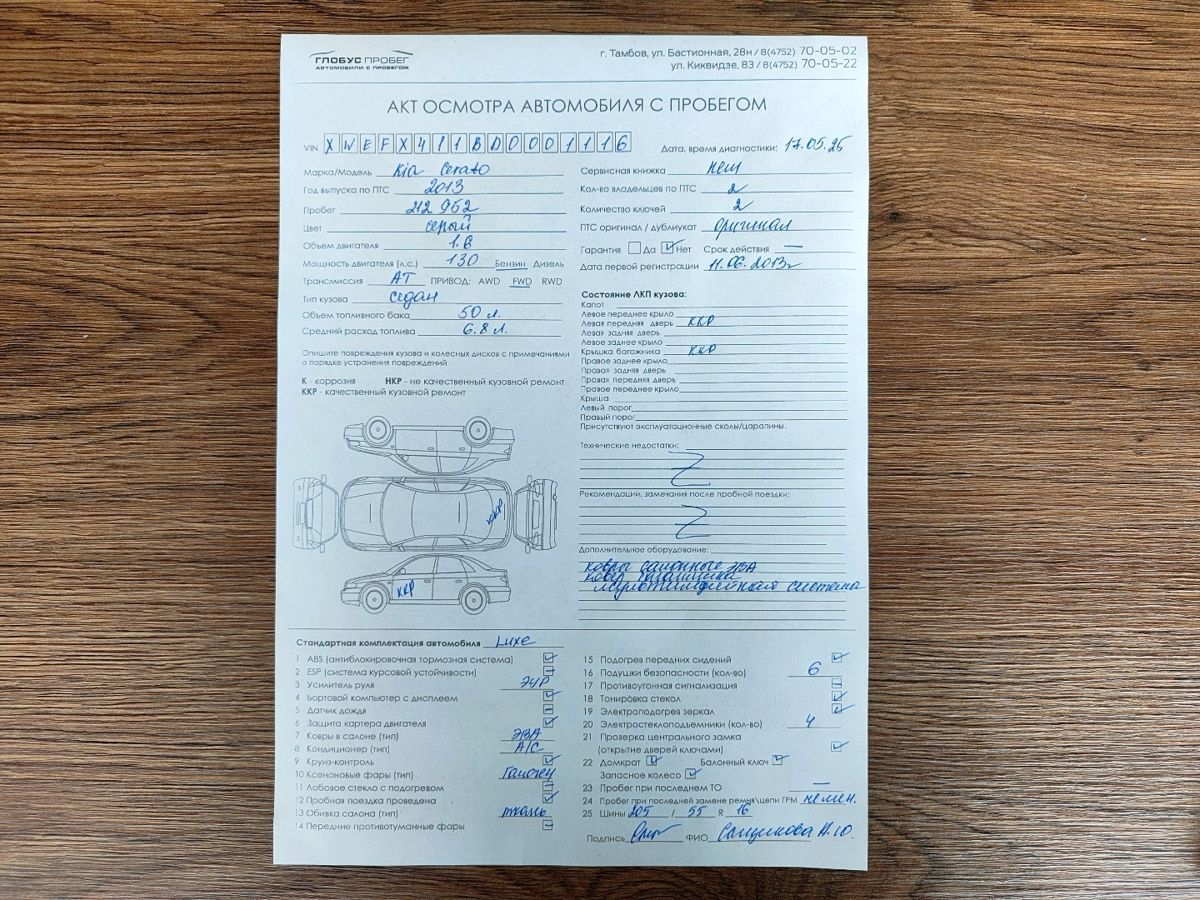 ГЛОБУС ПРОБЕГ
АВТОМОБИЛИ С ПРОБЕГОМ
г. Тамбов, ул. Бастионная, 28н / 8(4752) 70-05-02
ул. Киквидзе, 83 / 8(4752) 70-05-22
АКТ ОСМОТРА АВТОМОБИЛЯ С ПРОБЕГОМ
VIN XWEFX411BD0001116
Дата, время диагностики: 17.05.25
Марка/Модель Kia Cerato
Год выпуска по ПТС 2013
Пробег 212 952
Цвет серый
Объем двигателя 1.6
Мощность двигателя (л.с.) 130 Бензин Дизель
Трансмиссия АТ ПРИВОД: AWD FWD RWD
Тип кузова седан
Объем топливного бака 50 л.
Средний расход топлива 6.8 л.
Опишите повреждения кузова и колесных дисков с примечаниями
о порядке устранения повреждений
К - коррозия НКР - не качественный кузовной ремонт
ККР - качественный кузовной ремонт
ККР
ККР
Сервисная книжка нет
Кол-во владельцев по ПТС 2
Количество ключей 2
ПТС оригинал / дубликат оригинал
Гарантия Да Нет Срок действия —
Дата первой регистрации 11.06.2013г
Состояние ЛКП кузова:
Капот
Левое переднее крыло
Левая передняя дверь ККР
Левая задняя дверь
Левое заднее крыло
Крышка багажника ККР
Правое заднее крыло
Правая задняя дверь
Правая передняя дверь
Правое переднее крыло
Крыша
Левый порог
Правый порог
Присутствуют эксплуатационные сколы/царапины.
Технические недостатки:
Z
Рекомендации, замечания после пробной поездки:
Z
Дополнительное оборудование:
ковры салонные ЭВА
ковер багажника
мультимедийная система
Стандартная комплектация автомобиля Luxe
1 ABS (антиблокировочная тормозная система)
2 ESP (система курсовой устойчивости)
3 Усилитель руля ЭУР
4 Бортовой компьютер с дисплеем
5 Датчик дождя
6 Защита картера двигателя
7 Ковры в салоне (тип) ЭВА
8 Кондиционер (тип) А/С
9 Круиз-контроль
10 Ксеноновые фары (тип) Галоген
11 Лобовое стекло с подогревом
12 Пробная поездка проведена
13 Обивка салона (тип) ткань
14 Передние противотуманные фары
15 Подогрев передних сидений
16 Подушки безопасности (кол-во) 6
17 Противоугонная сигнализация
18 Тонировка стекол
19 Электроподогрев зеркал
20 Электростеклоподъемники (кол-во) 4
21 Проверка центрального замка
(открытие дверей ключами)
22 Домкрат Балонный ключ
Запасное колесо
23 Пробег при последнем ТО —
24 Пробег при последней замене ремня\цепи ГРМ не мен.
25 Шины 205 / 55 R 16
Подпись ФИО Н.Ю.